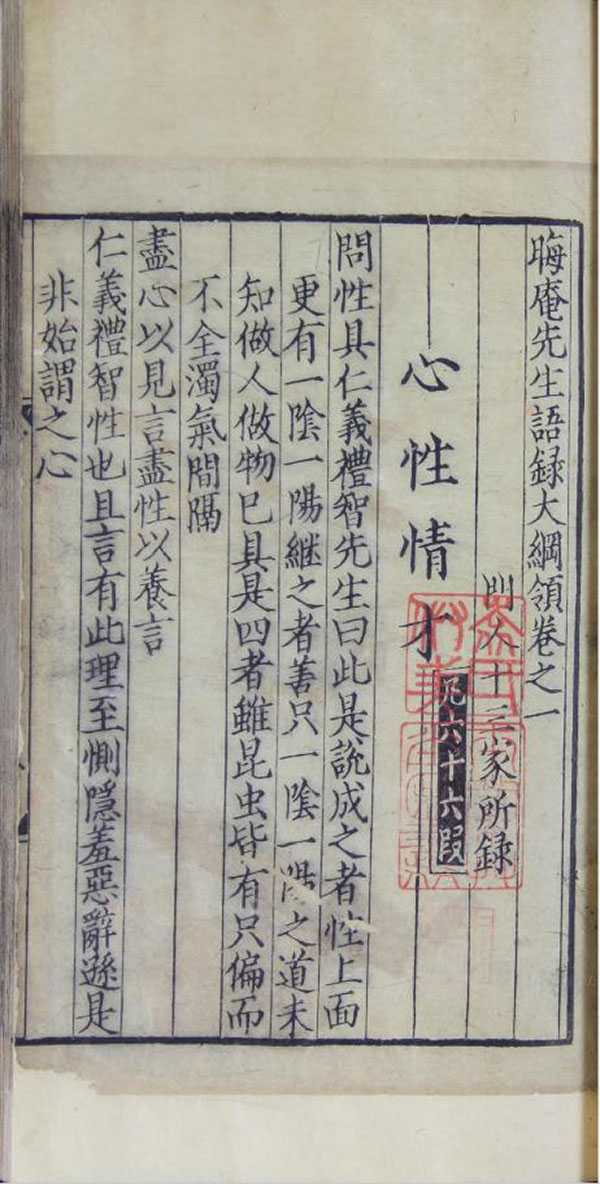 晦庵先生語録大綱領卷之一
門人十三家所録
心性情才
凡六十六段
問性具仁義禮智先生曰此是説成之者性上面
更有一隂一陽繼之者善只一隂一陽之道未
知做人做物已具是四者雖昆虫皆有只偏而
不全濁氣間隔
盡心以見言盡性以養言
仁義禮智性也且言有此理至惻隱羞惡辭遜是
非始謂之心